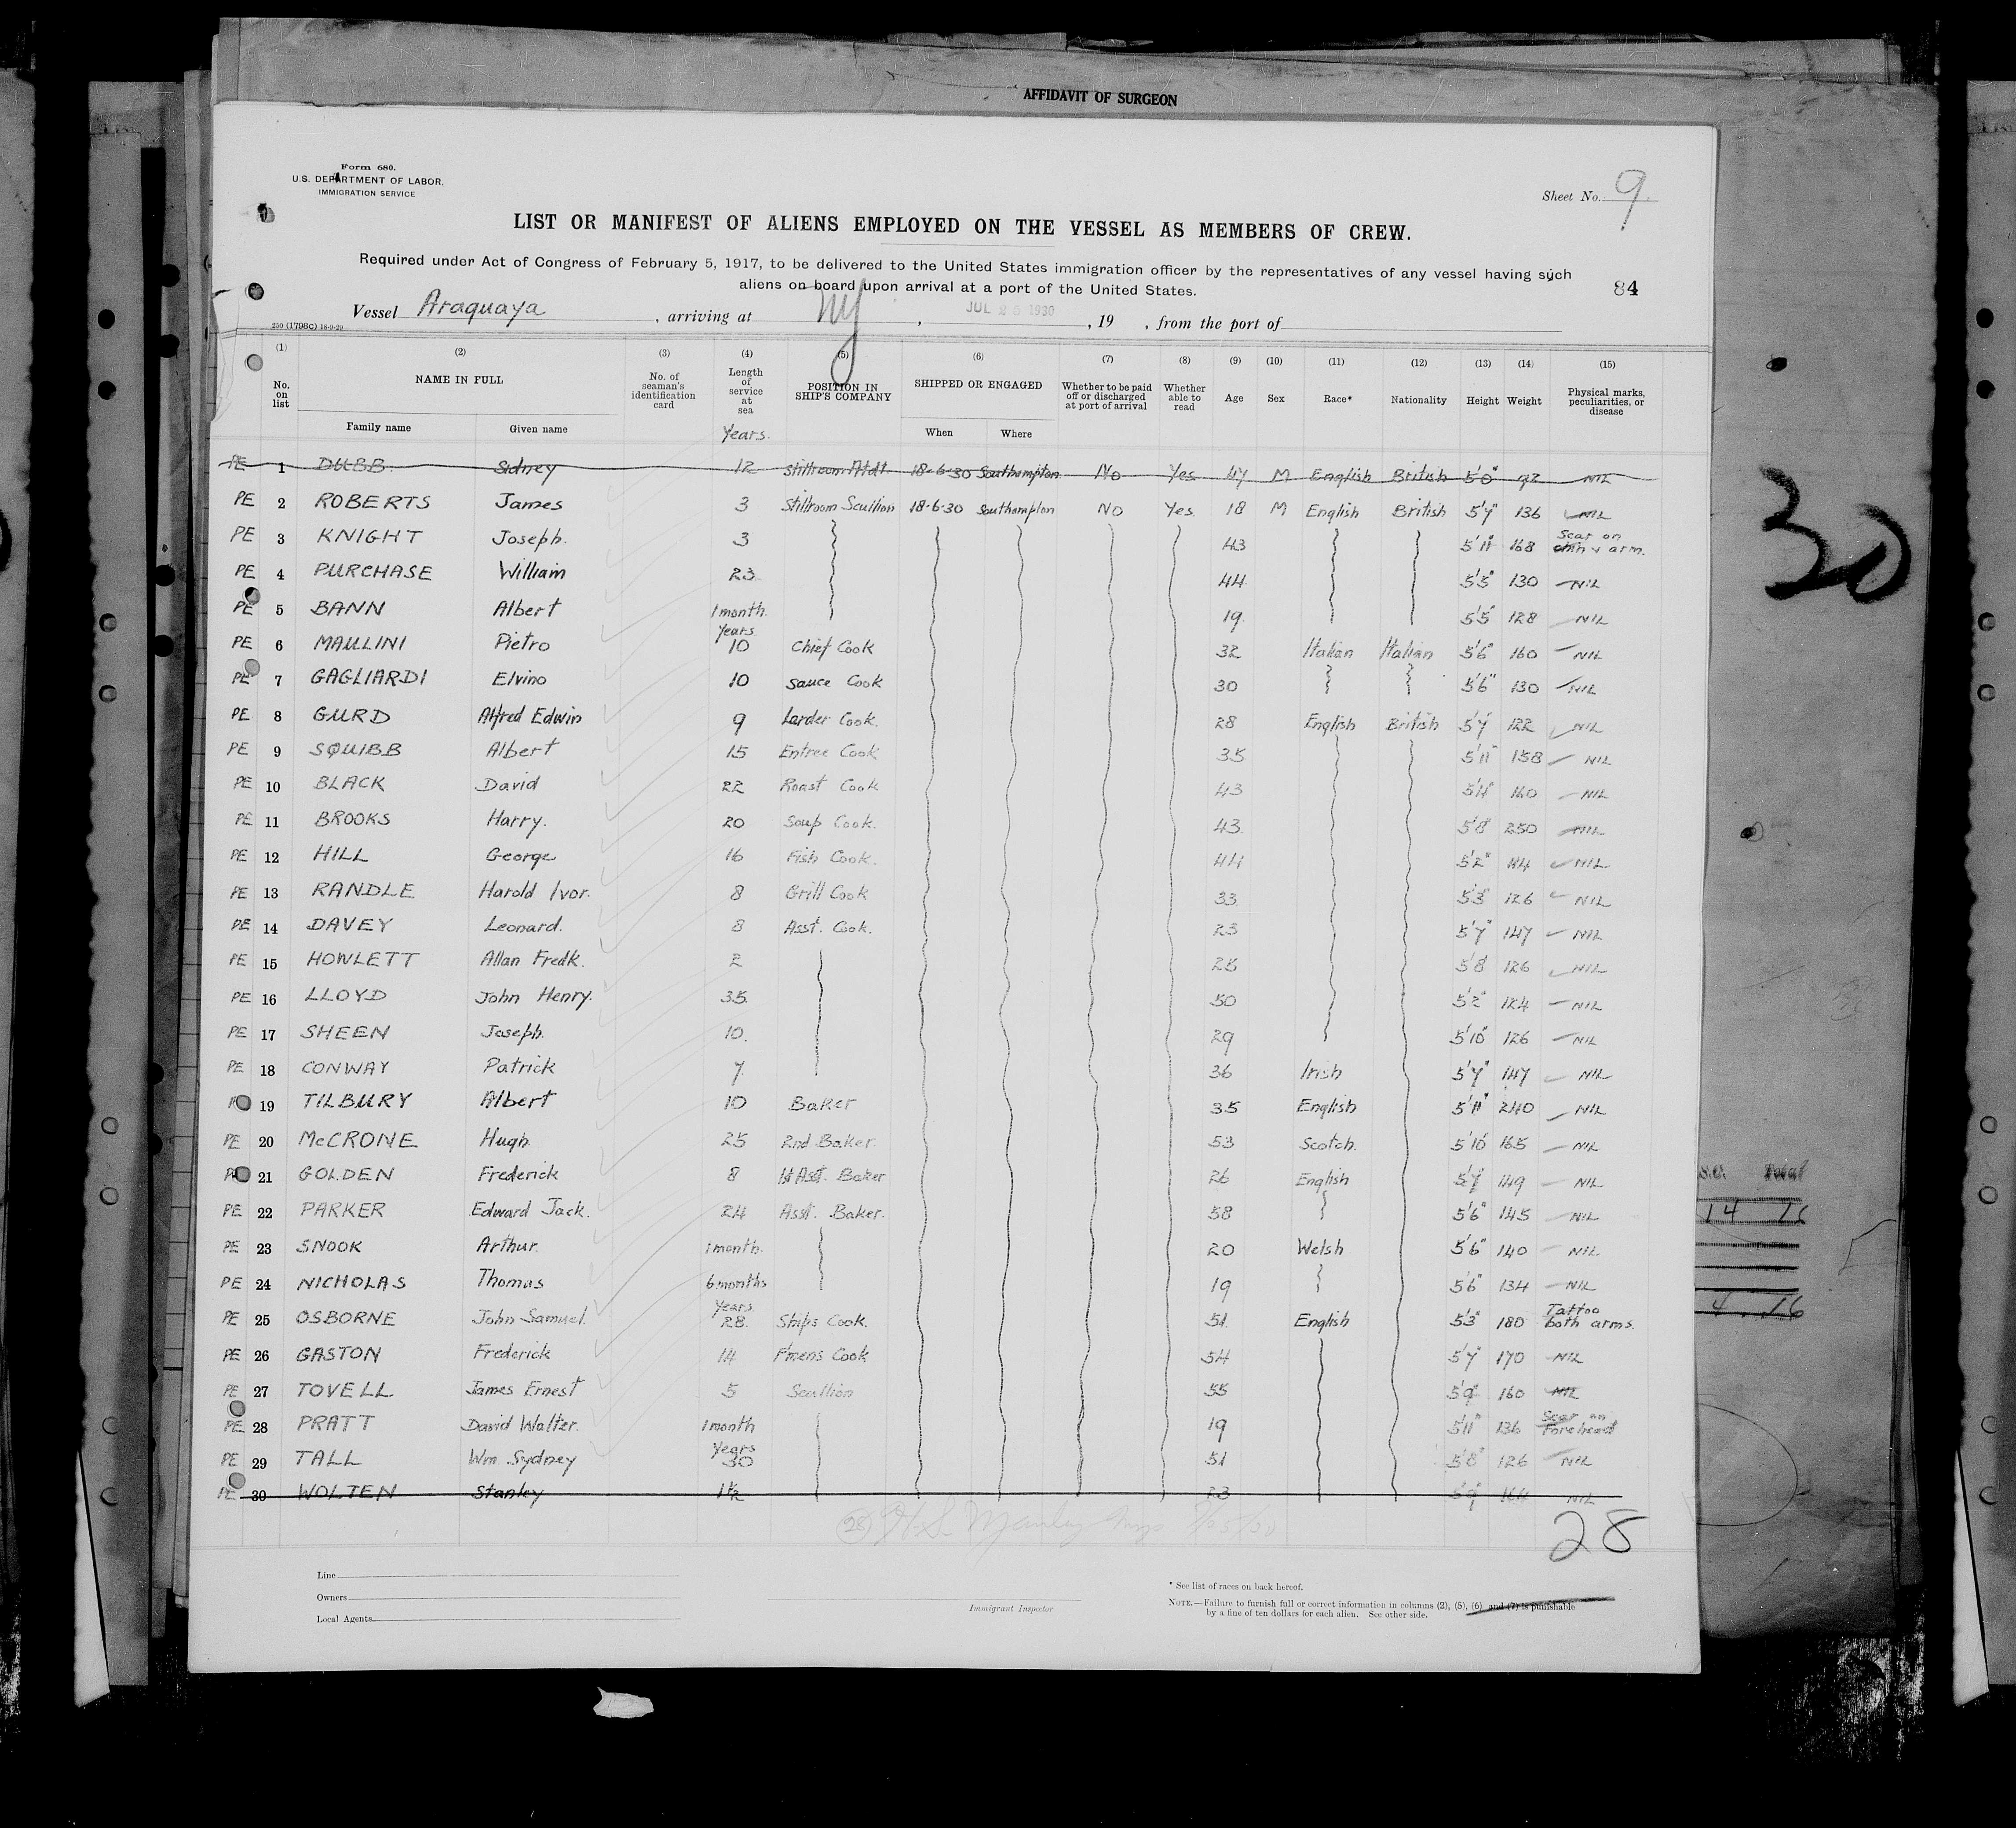 AFFIDAVIT OF SURGEON
Form 680.
U.S. DEPARTMENT OF LABOR.
IMMIGRATION SERVICE
Sheet No. 9.
LIST OR MANIFEST OF ALIENS EMPLOYED ON THE VESSEL AS MEMBERS OF CREW.
Required under Act of Congress of February 5, 1917, to be delivered to the United States immigration officer by the representatives of any vessel having such
aliens on board upon arrival at a port of the United States.
84
Vessel Araquaya, arriving at NY, JUL 25 1930, 19 , from the port of
250 (1798C) 18-9-29
(1) (2) (3) (4) (5) (6) (7) (8) (9) (10) (11) (12) (13) (14) (15)
No. on list NAME IN FULL No. of seaman's identification card Length of service at sea POSITION IN SHIP'S COMPANY SHIPPED OR ENGAGED Whether to be paid off or discharged at port of arrival Whether able to read Age Sex Race* Nationality Height Weight Physical marks, peculiarities, or disease
Family name Given name Years. When Where
PE 1 DUBB Sidney 12 Stillroom Atdt 18-6-30 Southampton No Yes 47 M English British 5'0" 92 NIL
PE 2 ROBERTS James 3 Stillroom Scullion 18-6-30 Southampton No Yes. 18 M English British 5'7" 136 NIL
PE 3 KNIGHT Joseph. 3 43 5'11" 168 Scar on chin & arm.
PE 4 PURCHASE William 23 44 5'5" 130 NIL
PE 5 BANN Albert 1 month. 19 5'5" 128 NIL
PE 6 MAULINI Pietro Years. 10 Chief Cook 32 Italian Italian 5'6" 160 NIL
PE 7 GAGLIARDI Elvino 10 Sauce Cook 30 5'6" 130 NIL
PE 8 GURD Alfred Edwin 9 Larder Cook. 28 English British 5'7" 122 NIL
PE 9 SQUIBB Albert 15 Entree Cook 35 5'11" 158 NIL
PE 10 BLACK David 22 Roast Cook 43 5'11" 160 NIL
PE 11 BROOKS Harry. 20 Soup Cook. 43 5'8" 250 NIL
PE 12 HILL George 16 Fish Cook. 44 5'2" 144 NIL
PE 13 RANDLE Harold Ivor. 8 Grill Cook 33 5'3" 126 NIL
PE 14 DAVEY Leonard. 8 Asst. Cook. 23 5'7" 147 NIL
PE 15 HOWLETT Allan Fredk. 2 25 5'8" 126 NIL
PE 16 LLOYD John Henry. 35. 50 5'2" 124 NIL
PE 17 SHEEN Joseph. 10. 29 5'10" 126 NIL
PE 18 CONWAY Patrick 7. 36 Irish 5'7" 147 NIL
19 TILBURY Albert 10 Baker 35 English 5'11" 240 NIL
PE 20 McCRONE Hugh 25 2nd Baker. 53 Scotch. 5'10" 165 NIL
21 GOLDEN Frederick 8 1st Asst. Baker 26 English 5'7" 149 NIL
PE 22 PARKER Edward Jack. 24 Asst. Baker. 58 5'6" 145 NIL
PE 23 SNOOK Arthur. 1 month. 20 Welsh 5'6" 140 NIL
PE 24 NICHOLAS Thomas 6 months 19 5'6" 134 NIL
PE 25 OSBORNE John Samuel. Years. 28. Ships Cook. 51 English 5'3" 180 Tattoo both arms.
PE 26 GASTON Frederick 14 F'mens Cook 54 5'7" 170 NIL
PE 27 TOVELL James Ernest 5 Scullion 55 5'9" 160 NIL
PE 28 PRATT David Walter. 1 month 19 5'11" 136 Scar on Forehead
PE 29 TALL Wm. Sydney Years 30 51 5'8" 126 NIL
PE 30 WOLTEN Stanley 1½ 23 5'9" 164 NIL
28
Line
Owners
Local Agents
Immigrant Inspector
* See list of races on back hereof.
NOTE.—Failure to furnish full or correct information in columns (2), (5), (6) and (7) is punishable
by a fine of ten dollars for each alien. See other side.
30
Total
14 16
4 16